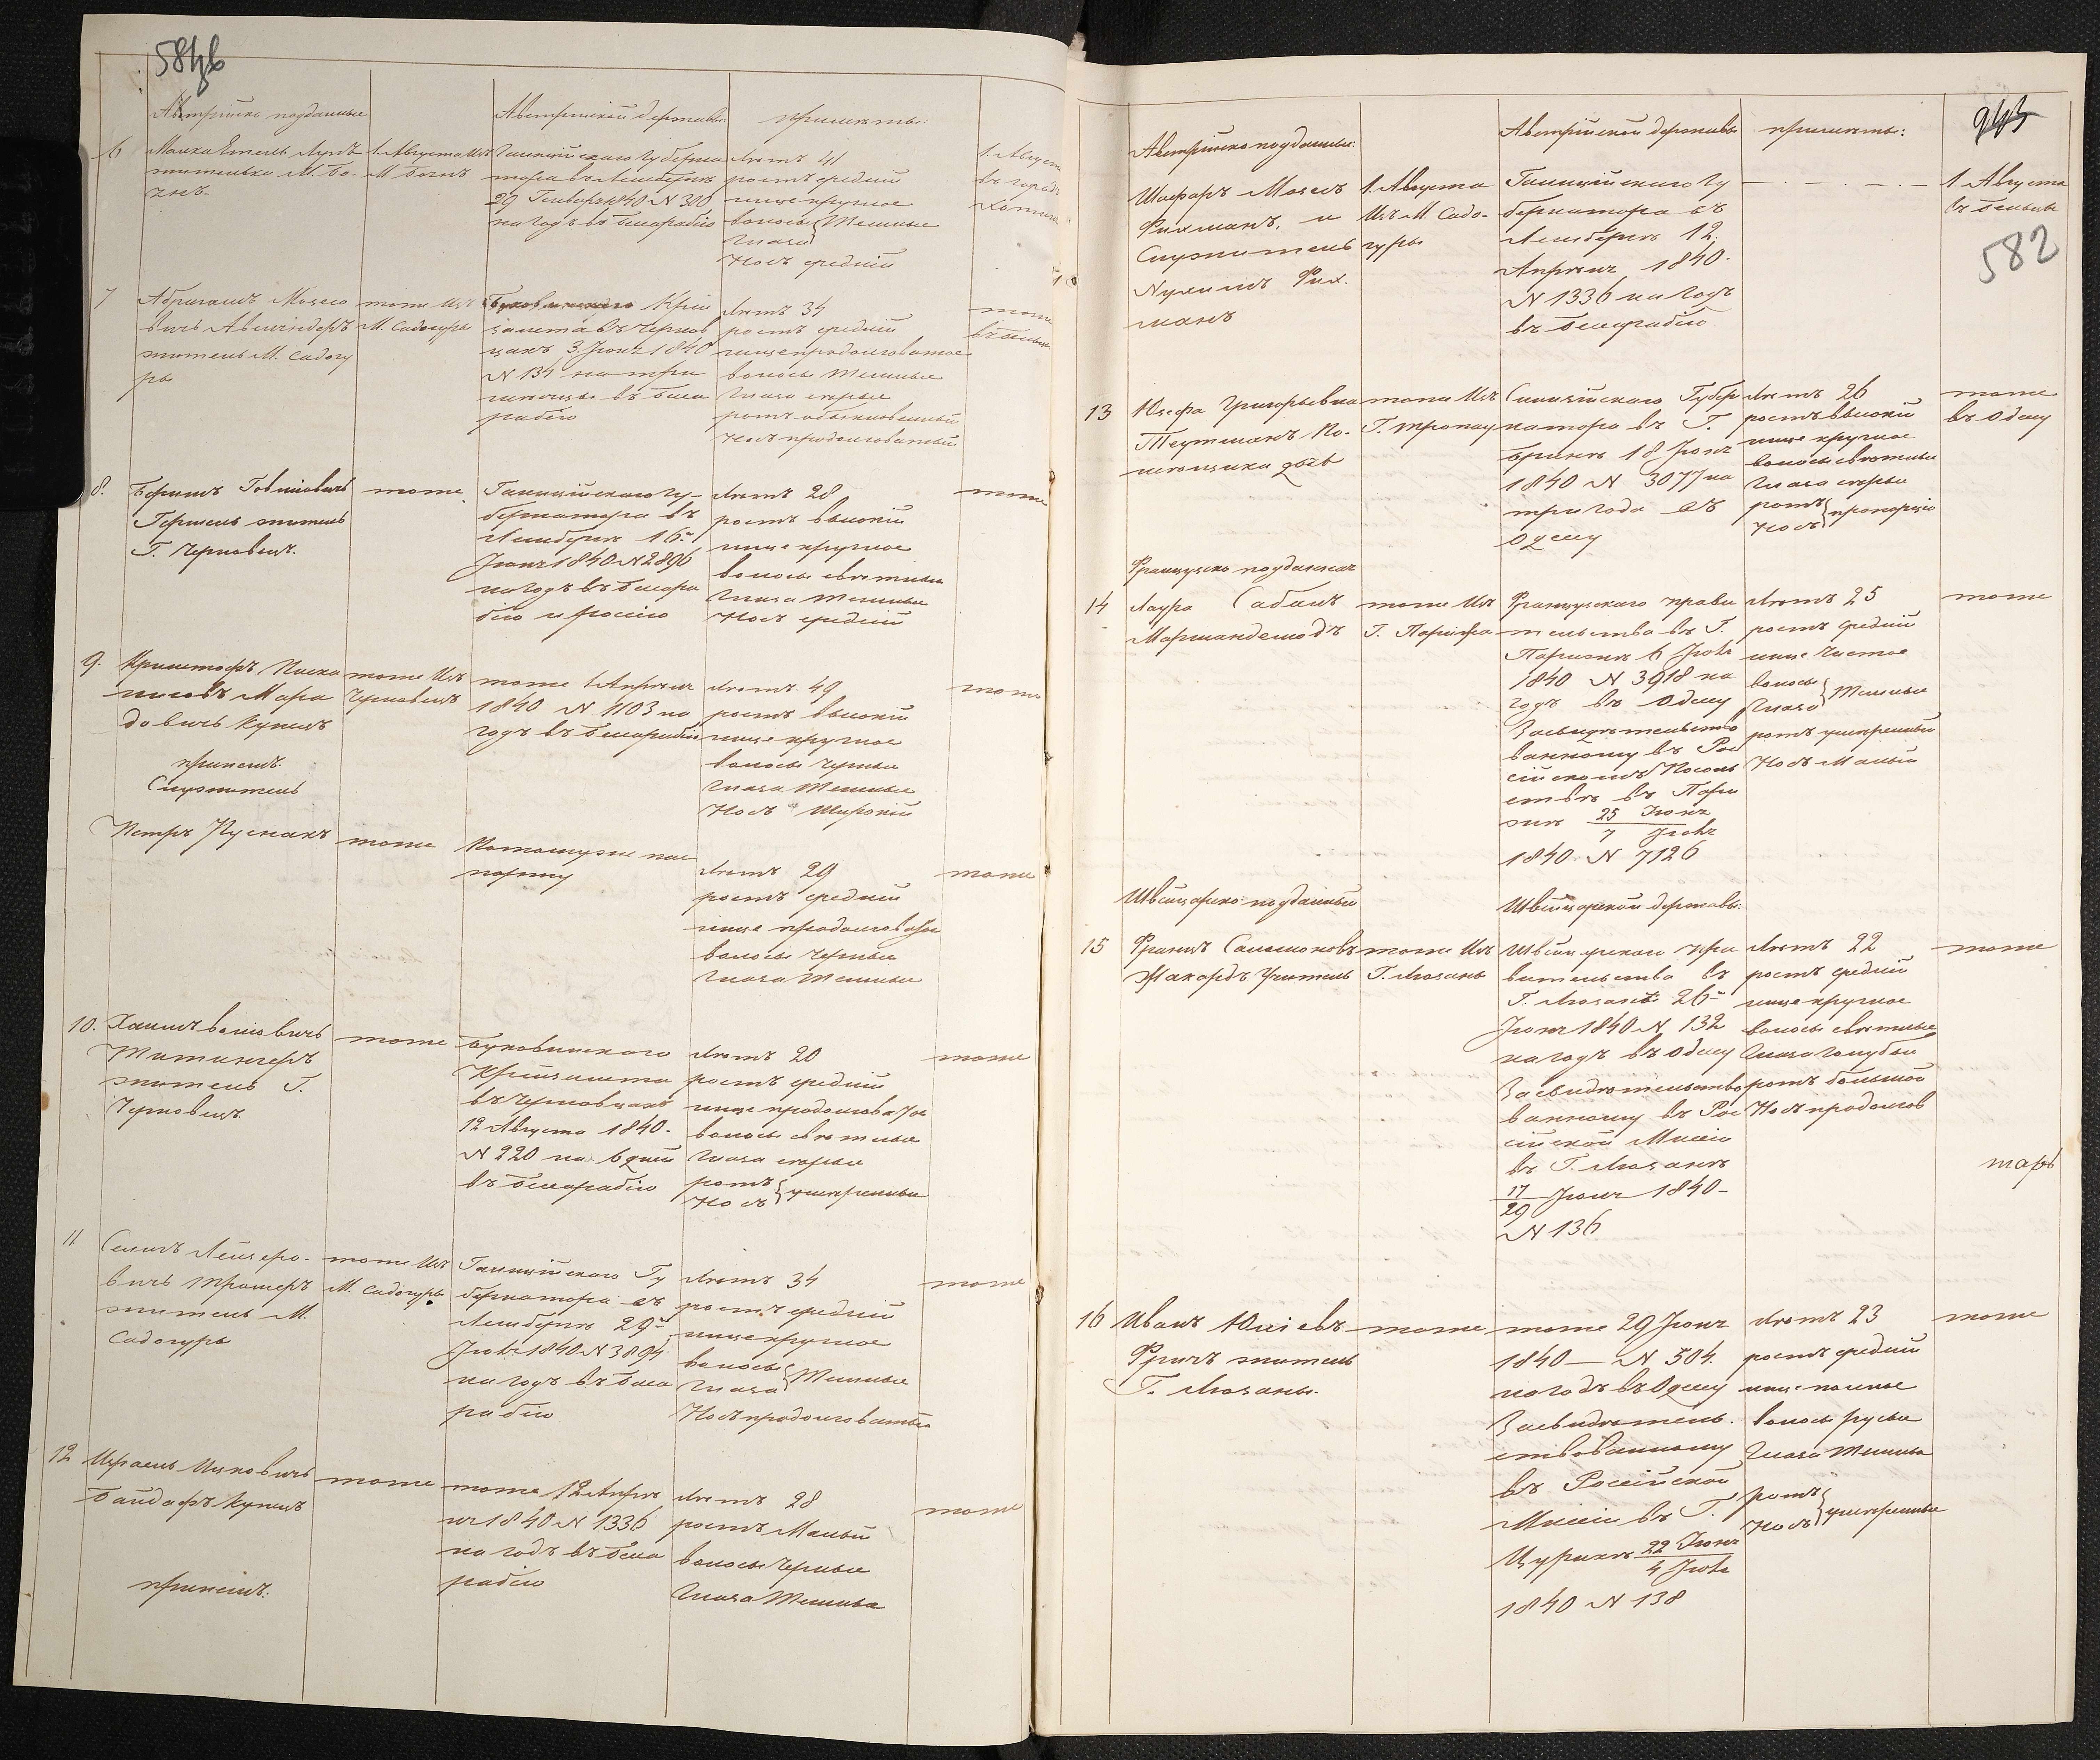 581об
Австрійско подданные
Австрійской державы
приметы:
6
Малка Етель Лувъ
жителька М. Бо-
янъ
1. Августа изъ
М. Боянъ
Галиційскаго Губерна
тора въ Лембергѣ
29 Генваря 1840 N 300
на годъ въ Бесарабію
Лѣтъ 41
ростъ средній
лице круглое
волосы
глаза } темные
Носъ средній
1. Август
въ городъ
Хотинъ
7
Абрагамъ Мозесо
вичь
житель М. Садогу
ры
тоже изъ
М. Садогуры
Буковинскаго Крій
замта въ Чернов
цахъ 3. Іюня 1840
N 134 на три
месяцы въ Беса
рабію
Лѣтъ 34
ростъ средній
лице продолговатое
волосы темные
глаза серые
ротъ обыкновенный
Носъ продолговатый
тоже
8.
Беришъ
Гершель житель
Г. Черновецъ.
тоже
Галиційскаго Гу-
бернатора въ
Лембергѣ 16го
Іюня 1840 N 2896
на годъ въ Бесара
бію и Россію
Лѣтъ 28
ростъ высокій
лице круглое
волосы светлые
глаза темные
Носъ средній
тоже
9.
Криштофъ Паска
ловъ Мара
довичь купецъ
при нёмъ
Служитель
тоже изъ
Черновецъ
тоже 1 Апреля
1840 N 1103 на
годъ въ Бесарабію
Лѣтъ 49
ростъ высокій
лице круглое
волосы черные
глаза темные
Носъ широкій
тоже
Петръ Руснакъ
тоже
Потомужъ пас
порту
Лѣтъ 29
ростъ средній
лице продолговатое
волосы черные
глаза темные
тоже
10.
Хаимъ
Титингеръ
житель Г.
Черновецъ
тоже
Буковинскаго
Крейзамта
въ Черновцахъ
12 Августа 1840.
N 220 на 6 дней
въ Бесарабію
Лѣтъ 20
ростъ средній
лице продолговатое
волосы светлые
глаза серые
ротъ
Носъ } умеренные
тоже
11
Селигъ Лейзеро-
вичь
житель М.
Садогуры
тоже изъ
М. Садогуры
Галиційскаго Гу
бернатора въ
Лембергѣ 29го
Іюля 1840 N 3894
на годъ въ Беса
рабію
Лѣтъ 34
ростъ средній
лице круглое
волосы
глаза } темные
Носъ продолговатый
тоже
12
Израель Ицковичь
Байдафъ купецъ
при нёмъ:
тоже
тоже 12 Апре
ля 1840 N 1336
на годъ въ Беса
рабію
Лѣтъ 28
ростъ малый
волосы черные
глаза темные
тоже
582
Австрійско подданные:
Австрійской державы
приметы:
Шафаръ Мозесъ
Фихманъ, и
Служитель
Фих.
манъ
1. Августа
изъ М. Садо-
гуры
Галиційскаго Гу
бернатора въ
Лембергѣ 12
Апреля 1840.
N 1336 на годъ
въ Бесарабію
1. Августа
въ Бельцы
13
Юзефа Григорьевна
Теутманъ По-
мещика
тоже изъ
Г. Тропау
Галиційскаго Губер
натора въ Г.
Бринѣ 18 Іюня
1840 N 3077 на
три года въ
Одесу
Лѣтъ 26
ростъ высокій
лице круглое
волосы светлые
глаза серые
ротъ
Носъ } пропорціо
тоже
въ Одесу
Французско подданная
14
Лаура Сабаль
тоже изъ
Г. Парижа
Французскаго прави
тельства въ Г.
Парижѣ 6 Іюля
1840 N 3918 на
годъ въ Одесу
Засвидѣтельство
ванному въ Рос
сійскомъ Посоль
ствѣ въ Пари
жѣ 25 Іюня
7 Іюля
1840. N 7126
Лѣтъ 25
ростъ средній
лице чистое
волосы
глаза } темные
ротъ умеренный
Носъ малый
тоже
Швейцарско-подданный
Швейцарской державы:
15
Францъ Саломоновъ
Жакардъ Учитель
тоже изъ
Г. Лозаны
Швейцарскаго пра
вительства въ
Г. Лозанѣ 26го
Іюня 1840 N 132
на годъ въ Одесу
Засвидѣтельство
ванному въ Рос
сійской Миссіи
въ Г. Лозанѣ
17
29 Іюня 1840-
N 136
Лѣтъ 22
ростъ средній
лице круглое
волосы светлые
глаза голубые
ротъ большой
Носъ продолгов
тоже
16
Иванъ
житель
Г. Лозаны.
тоже
тоже 29 Іюня
1840 — N 504.
на годъ въ Одесу
Засвидѣтель.
ствованному
въ Россійской
Миссіи въ Г.
Цурихѣ 22 Іюня
4 Іюля
1840 N 138
Лѣтъ 23
ростъ средній
лице полное
волосы русые
глаза темные
ротъ
Носъ } умеренные
тоже